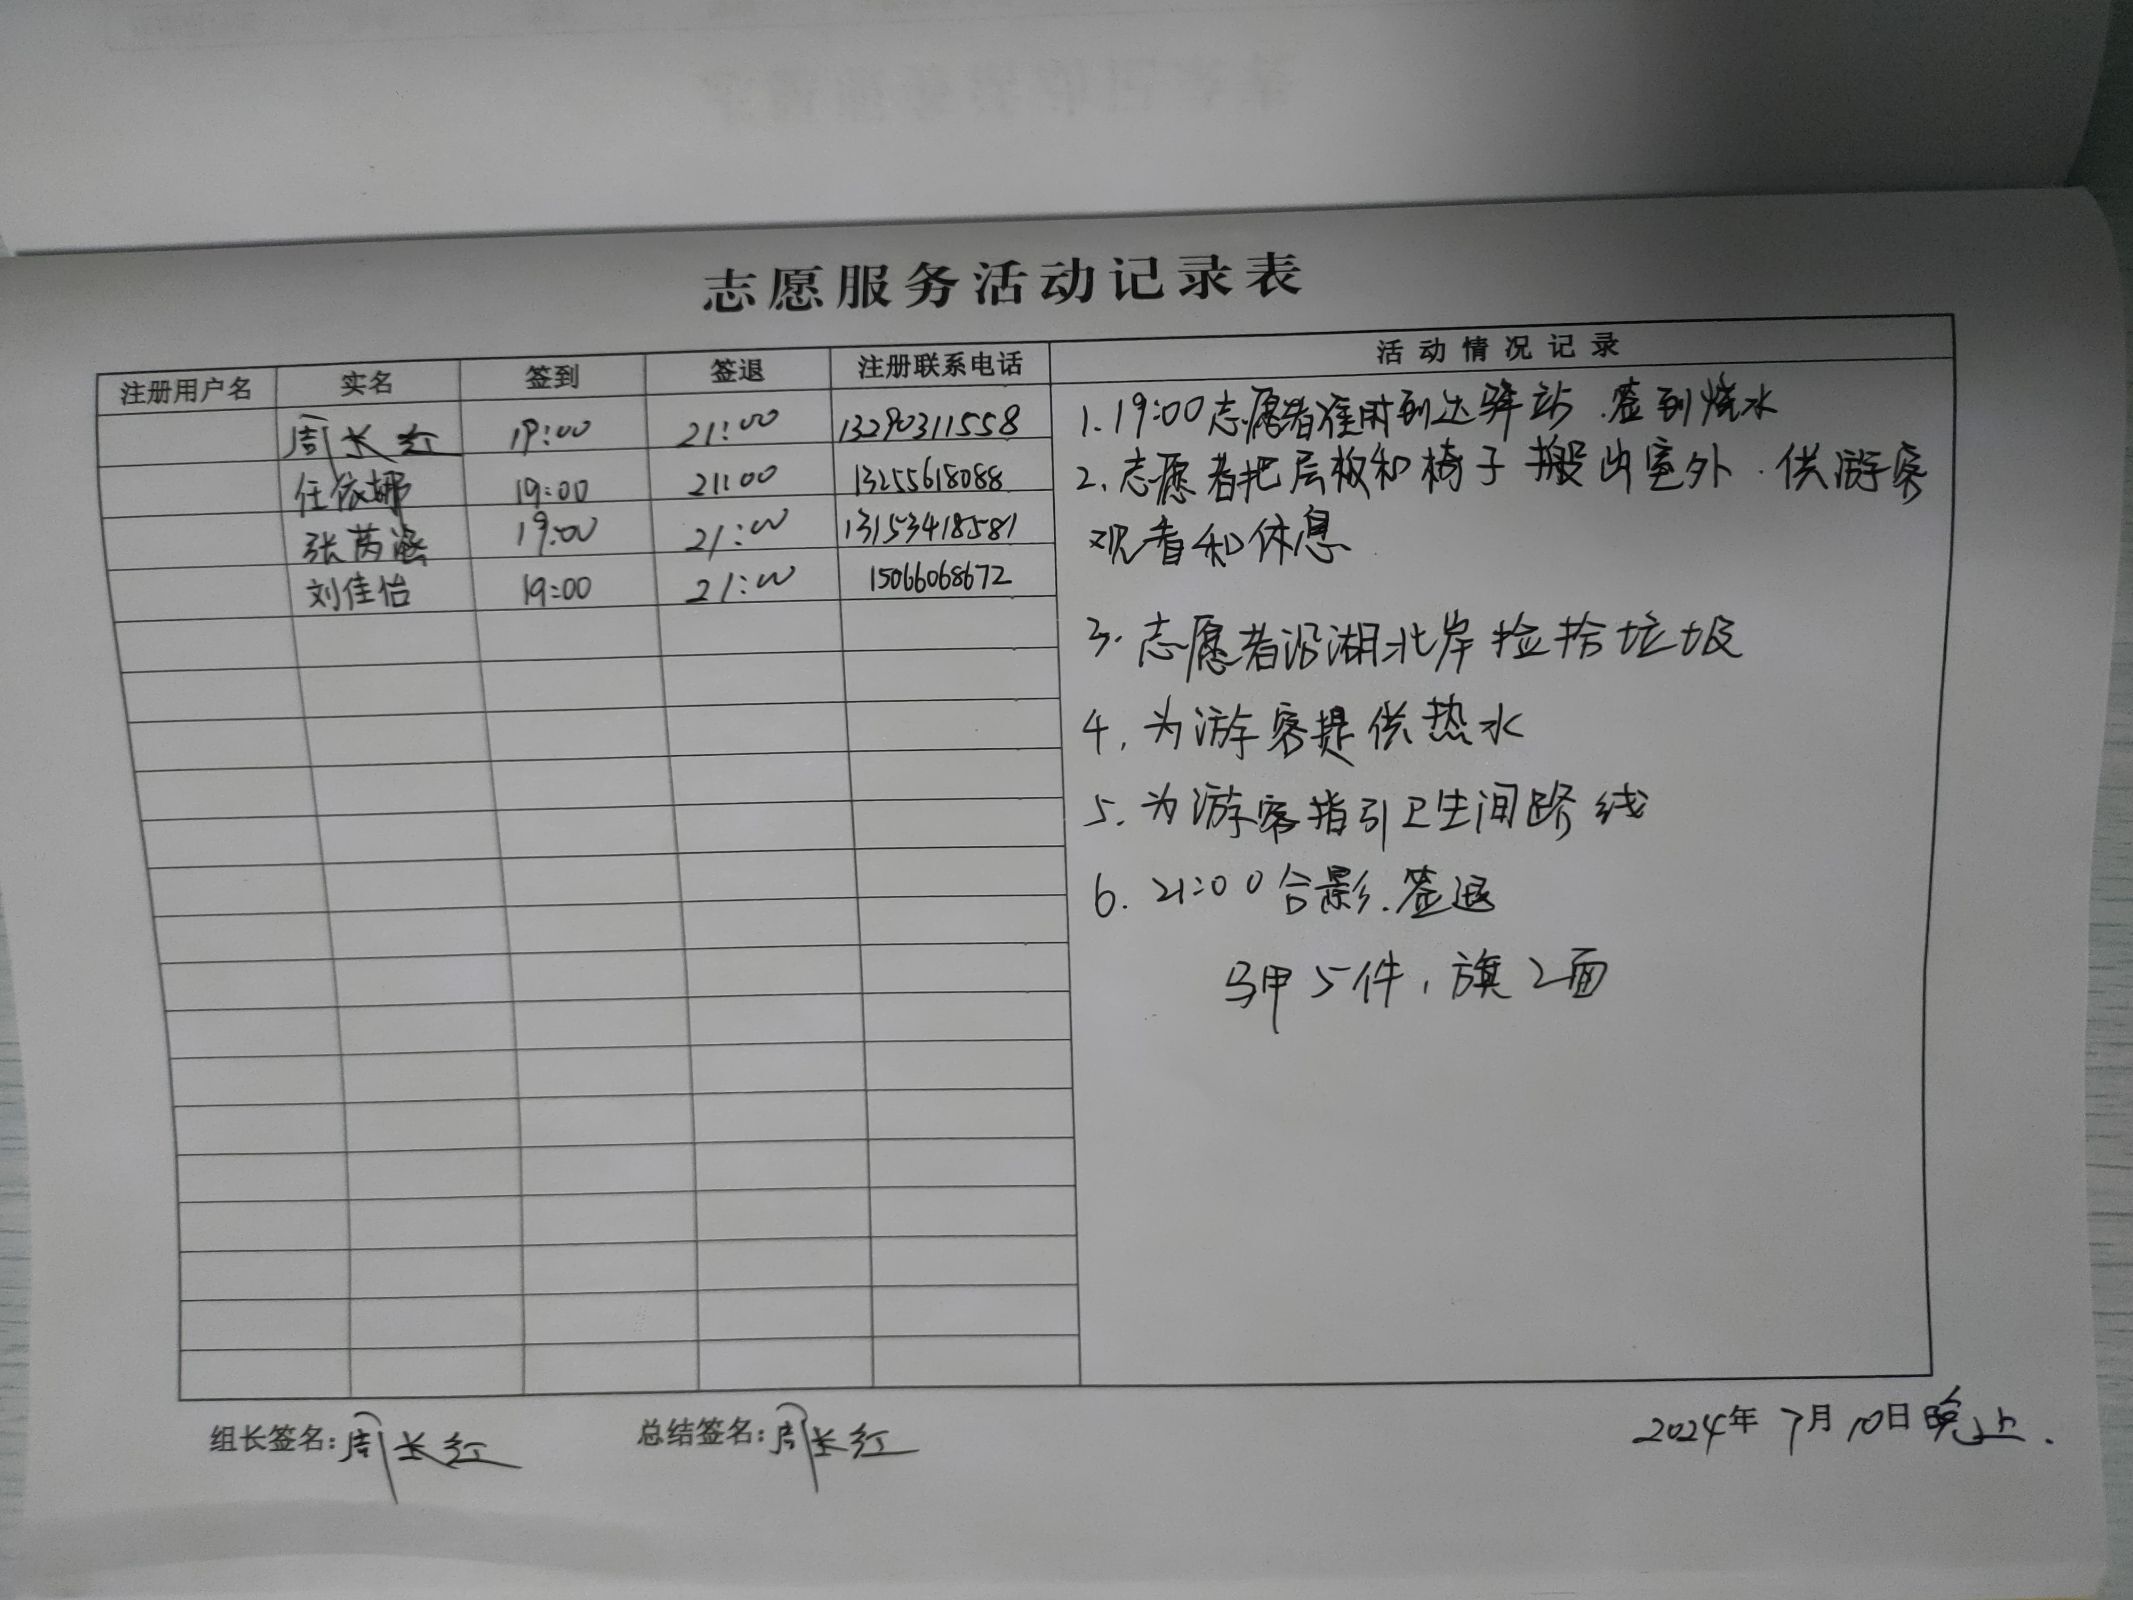 志愿服务活动记录表
注册用户名 实名 签到 签退 注册联系电话 活动情况记录
周长红 19:00 21:00 13290311558
任依娜 19:00 21:00 13255618088
张芮涵 19:00 21:00 13153418581
刘佳怡 19:00 21:00 15066068672
1.19:00志愿者准时到达驿站.签到烧水
2.志愿者把层板和椅子搬出室外.供游客
观看和休息
3.志愿者沿湖北岸捡拾垃圾
4.为游客提供热水
5.为游客指引卫生间路线
6.21:00合影.签退
马甲5件,旗2面
组长签名:周长红 总结签名:周长红 2024年7月10日晚上.